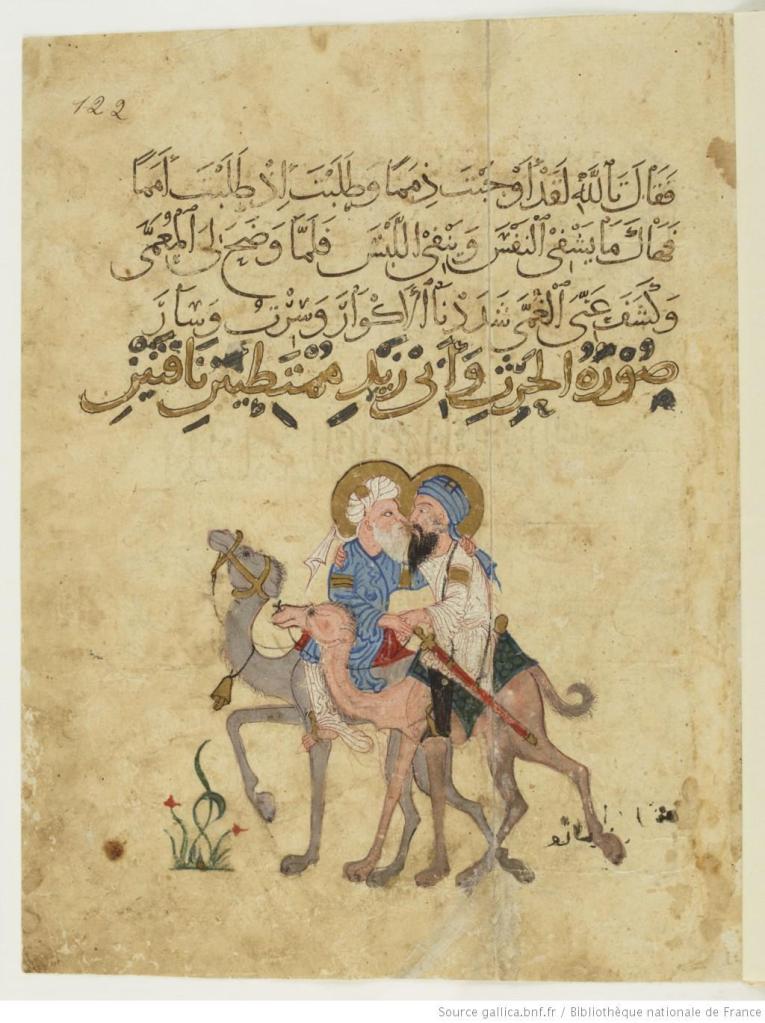 122
فَقَالَ تَاللّٰهِ لَقَدْ اَوْجَبْتَ ذِمَمًا وَطَلَبْتَ اِذْ طَلَبْتَ اَمَمًا
فَهَاكَ مَا يَشْفِى النَّفْسَ وَيَنْفِى اللَّبْسَ فَلَمَّا وَضَحَ لِىَ الْمُعَمَّى
وَكَشَفَ عَنِّى الْغُمَّى شَدَدْنَا الْاَكْوَارَ وَسِرْتُ وَسَارَ
صُوْرَةُ الحَرِثِ وَأَبِى زَيْدٍ مُمْتَطِيَيْنِ نَاقَتَيْنِ
Source gallica.bnf.fr / Bibliothèque nationale de France